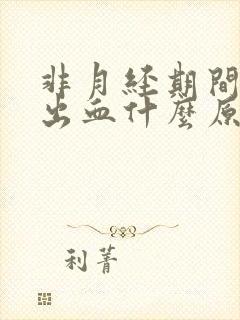 非月経期間
出血什麼原
利菁